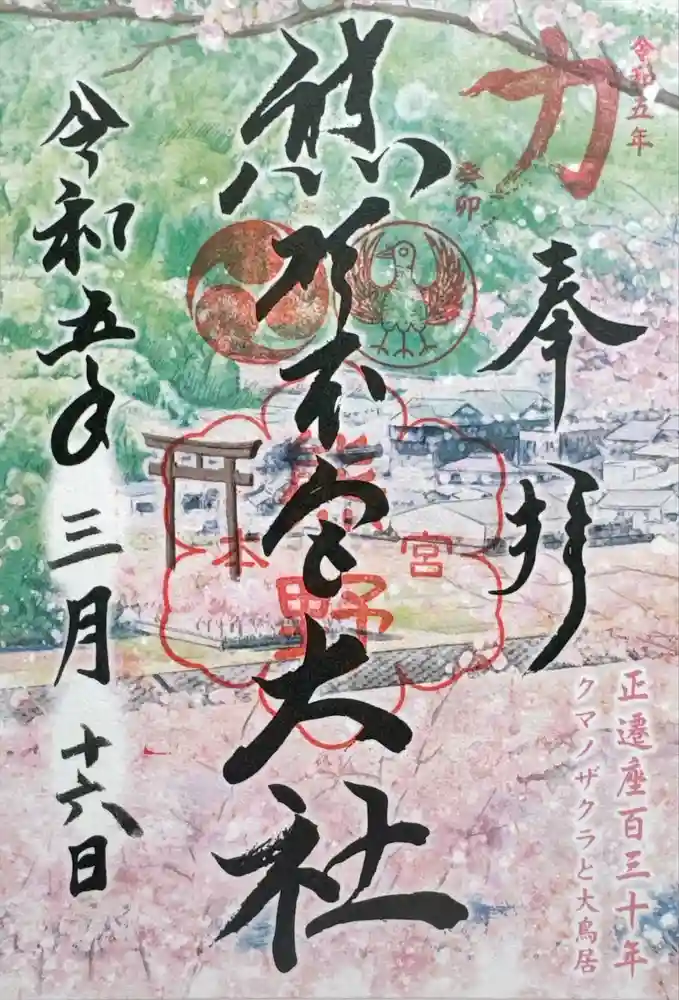 令和五年
癸卯
力
奉拝
熊野本宮大社
熊野
本宮
令和五年三月十六日
正遷座百三十年
クマノザクラと大鳥居